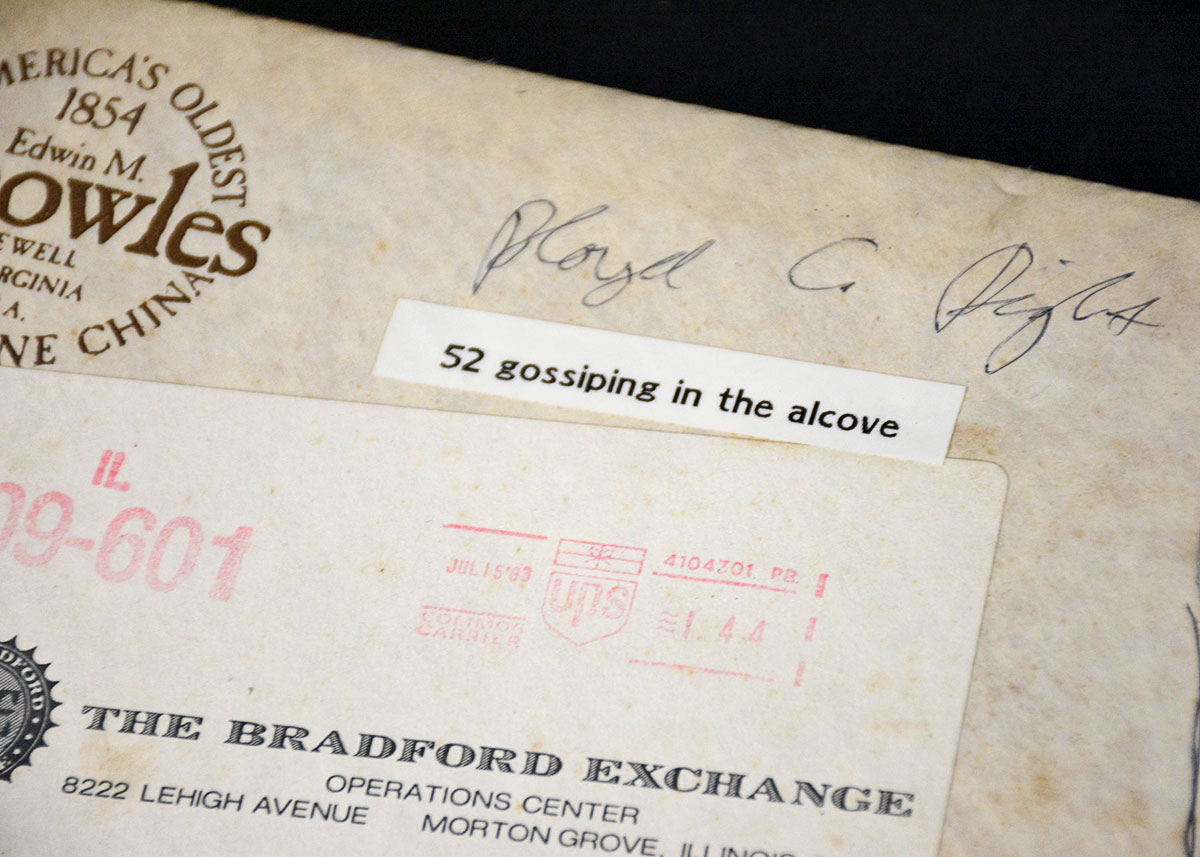 MERICA'S OLDEST
1854
Edwin M.
owles
EWELL
RGINIA
A.
NE CHINA
C.
52 gossiping in the alcove
IL
09-601
JUL 15 '83
4104301 PB
ups
COMMON
CARRIER
1.44
BRADFORD
THE BRADFORD EXCHANGE
OPERATIONS CENTER
8222 LEHIGH AVENUE
MORTON GROVE, ILLINOIS